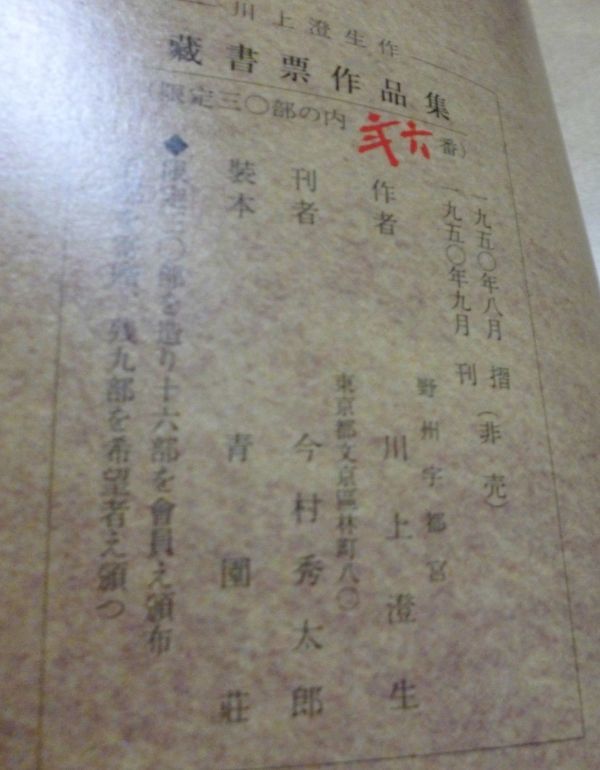 川上澄生作
藏書票作品集
(限定三〇部の内 弐六 番)
一九五〇年八月 摺(非売)
一九五〇年九月 刊
野州宇都宮
作者 川上澄生
東京都文京區林町八〇
刊者 今村秀太郎
裝本 青園莊
◆限定三〇部を造り十六部を會員え頒布
を 、残九部を希望者え頒つ